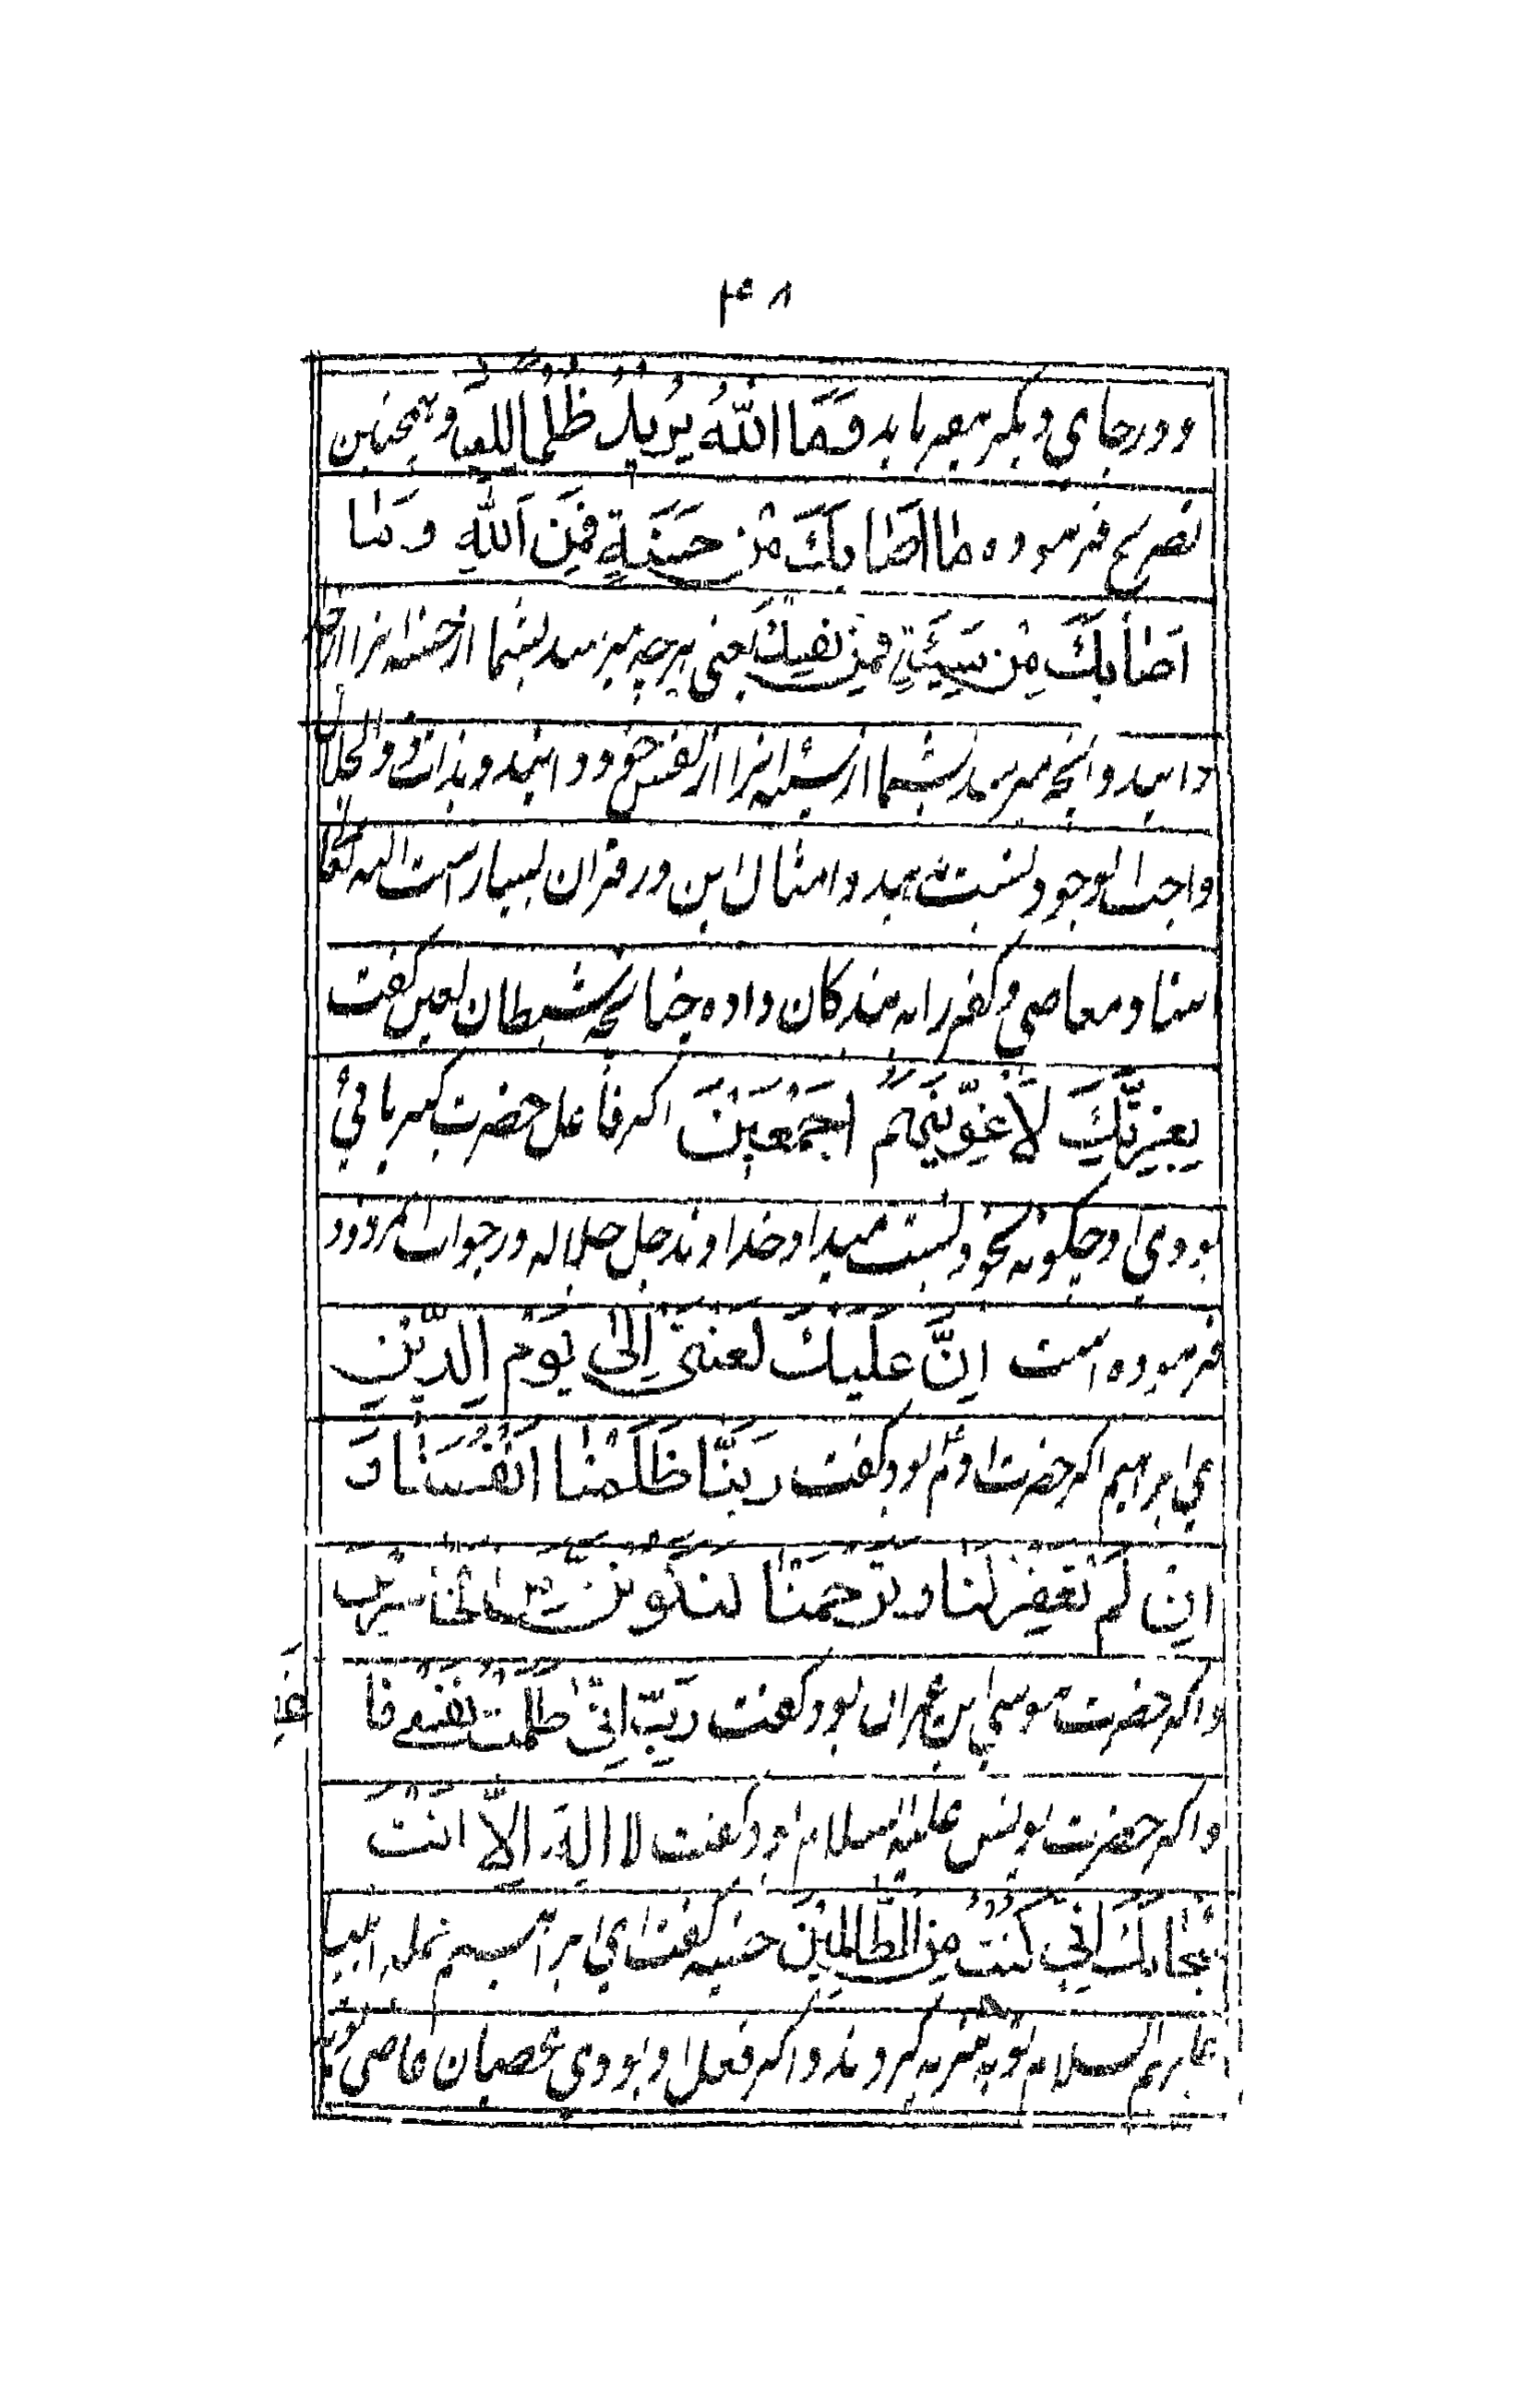 ۴۸
و در جای دیگر میفرماید وَمَا اللّٰهُ یُرِیدُ ظُلْمًا لِلعباد و همچنین
تصریح فرموده ما اَصَابَكَ مِنْ حَسَنَةٍ فَمِنَ اللّٰهِ وَمَا
اَصَابَكَ مِنْ سَیِّئَةٍ فَمِنْ نَفْسِكَ یعنی هرچه میرسد بشما از حسنه انرا از حق
دانید و انچه میرسد بشما از سیئه انرا از نفس خود دانید و بذات ذو الجلال
واجب الوجود نسبت مدهید و امثال این در قران بسیار است
اسناد معاصی و کفر را به بندکان داده چنانچه شیطان لعین کفت
بِعِزَّتِكَ لَاُغْوِیَنَّهُمْ اَجْمَعِیْنَ اکر فاعل حضرت کبریائی
بودی او چکونه بخود نسبت میداد خداوند جل جلاله در جواب انمردود
فرموده است اِنَّ عَلَیْكَ لَعْنَتِیْ اِلٰی یَوْمِ الدِّیْنِ
ای ابراهیم اکر حضرت ادم بود کفت رَبَّنَا ظَلَمْنَا اَنْفُسَنَا وَ
اِنْ لَمْ تَغْفِرْ لَنَا وَ تَرْحَمْنَا لَنَكُوْنَنَّ مِنَ الْخَاسِرِیْنَ
و اکر حضرت موسی ابن عمران بود کفت رَبِّ اِنِّیْ ظَلَمْتُ نَفْسِیْ فَا
و اکر حضرت یونس علیه السلام بود کفت لا اِلٰهَ اِلَّا اَنْتَ
سُبْحَانَكَ اِنِّیْ كُنْتُ مِنَ الظَّالِمِیْنَ حسنیه کفت ای ابراهیم جمله انبیا
علیهم السلام توبه کردند و اکر فعل او بودی عصیان عاصی